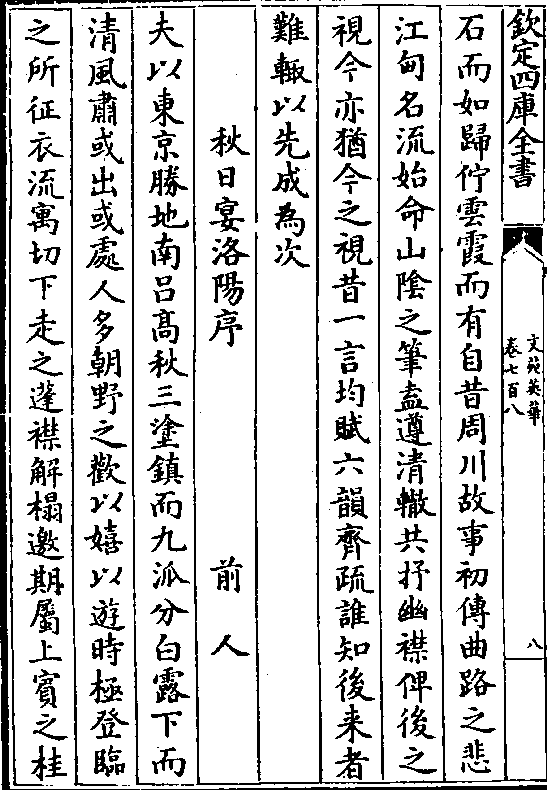 欽定四庫全書
文苑英華
卷七百八
八
石而如歸佇雲霞而有自昔周川故事初傳曲路之悲
江甸名流始命山陰之筆盍遵清轍共抒幽襟俾後之
視今亦猶今之視昔一言均賦六韻齊疏誰知後来者
難輙以先成為次
秋日宴洛陽序
前人
夫以東京勝地南呂髙秋三塗鎮而九派分白露下而
清風肅或出或處人多朝野之歡以嬉以遊時極登臨
之所征衣流寓切下走之蓬襟解榻邀期屬上賓之桂